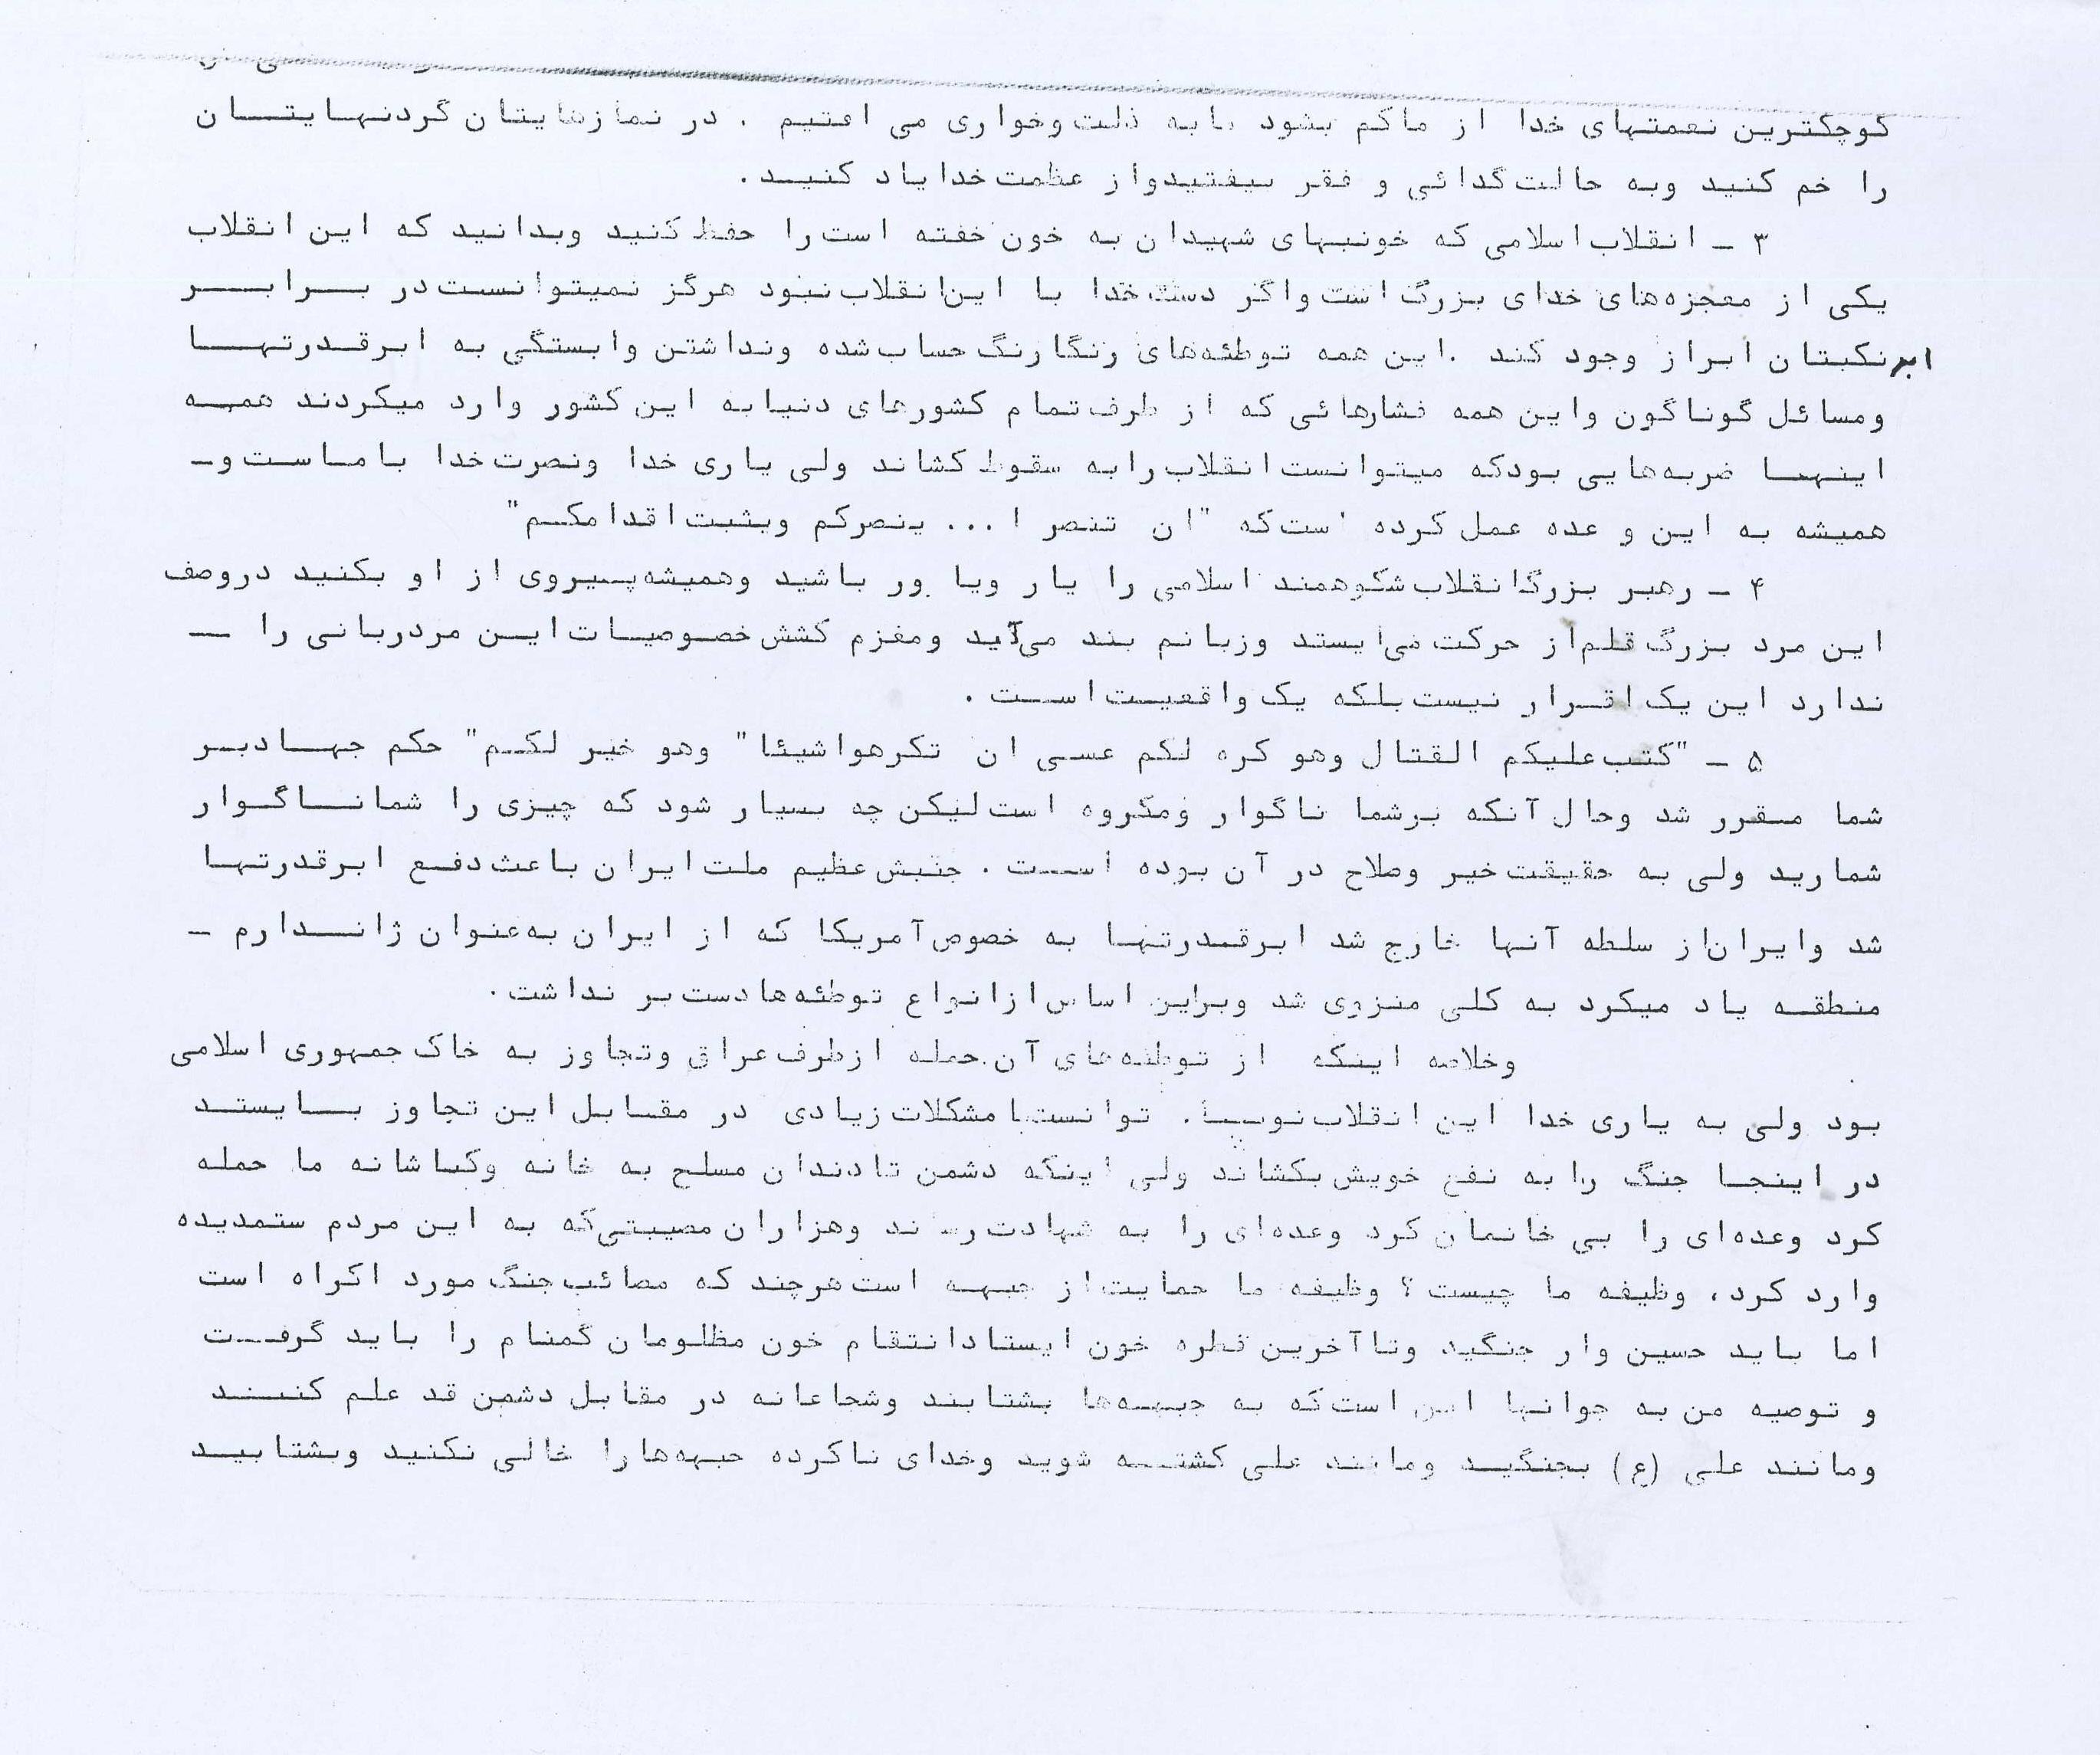 کوچکترین نعمتهای خدا از ماکم بشود مابه ذلت وخواری می افتیم . در نمازهایتان گردنهایتان
را خم کنید وبه حالت گدائی و فقر بیفتیدواز عظمت خدایاد کنید .
۳ ـ انقلاب اسلامی که خونبهای شهیدان به خون خفته است را حفظ کنید وبدانید که این انقلاب
یکی از معجزه‌های خدای بزرگ است واگر دست خدا با این انقلاب نبود هرگز نمیتوانست در برابر
ابرنکبتان ابراز وجود کند . این همه توطئه‌های رنگارنگ حساب شده ونداشتن وابستگی به ابرقدرتها
ومسائل گوناگون واین همه فشارهائی که از طرف تمام کشورهای دنیابه این کشور وارد میکردند همه
اینها ضربه‌هایی بودکه میتوانست انقلاب رابه سقوط کشاند ولی یاری خدا ونصرت خدا باماست و ـ
همیشه به این و عده عمل کرده است که "ان تنصر ا ... ینصرکم ویثبت اقدامکم"
۴ ـ رهبر بزرگ انقلاب شکوهمند اسلامی را یار ویاور باشید وهمیشه پیروی از او بکنید دروصف
این مرد بزرگ قلم از حرکت می‌ایستد وزبانم بند می‌آید ومغزم کشش خصوصیات این مردربانی را ـ
ندارد این یک اقرار نیست بلکه یک واقعیت است .
۵ ـ "کتب علیکم القتال وهو کره لکم عسی ان تکرهواشیئا" وهو خیر لکم" حکم جهادبر
شما مقرر شد وحال آنکه برشما ناگوار ومکروه است لیکن چه بسیار شود که چیزی را شماناگوار
شمارید ولی به حقیقت خیر وصلاح در آن بوده است . جنبش عظیم ملت ایران باعث دفع ابرقدرتها
شد وایران از سلطه آنها خارج شد ابرقدرتها به خصوص آمریکا که از ایران به‌عنوان ژاندارم ـ
منطقه یاد میکرد به کلی منزوی شد وبراین اساس ازانواع توطئه‌هادست بر نداشت .
وخلاصه اینکه از توطئه‌های آن حمله ازطرف عراق وتجاوز به خاک جمهوری اسلامی
بود ولی به یاری خدا این انقلاب نوپا . توانست با مشکلات زیادی در مقابل این تجاوز بایستد
در اینجا جنگ رابه نفع خویش بکشاند ولی اینکه دشمن تادندان مسلح به خانه وکاشانه ما حمله
کرد وعده‌ای را بی خانمان کرد وعده‌ای را به شهادت رساند وهزاران مصیبتی‌که به این مردم ستمدیده
وارد کرد، وظیفه ما چیست ؟ وظیفه ما حمایت از جبهه است هرچند که مصائب جنگ مورد اکراه است
اما باید حسین وار جنگید وتاآخرین قطره خون ایستادانتقام خون مظلومان گمنام را باید گرفت
و توصیه من به جوانها این است که به جبهه‌ها بشتابند وشجاعانه در مقابل دشمن قد علم کنند
ومانند علی (ع) بجنگید ومانند علی کشته شوید وخدای ناکرده جبهه‌هارا خالی نکنید وبشتابید